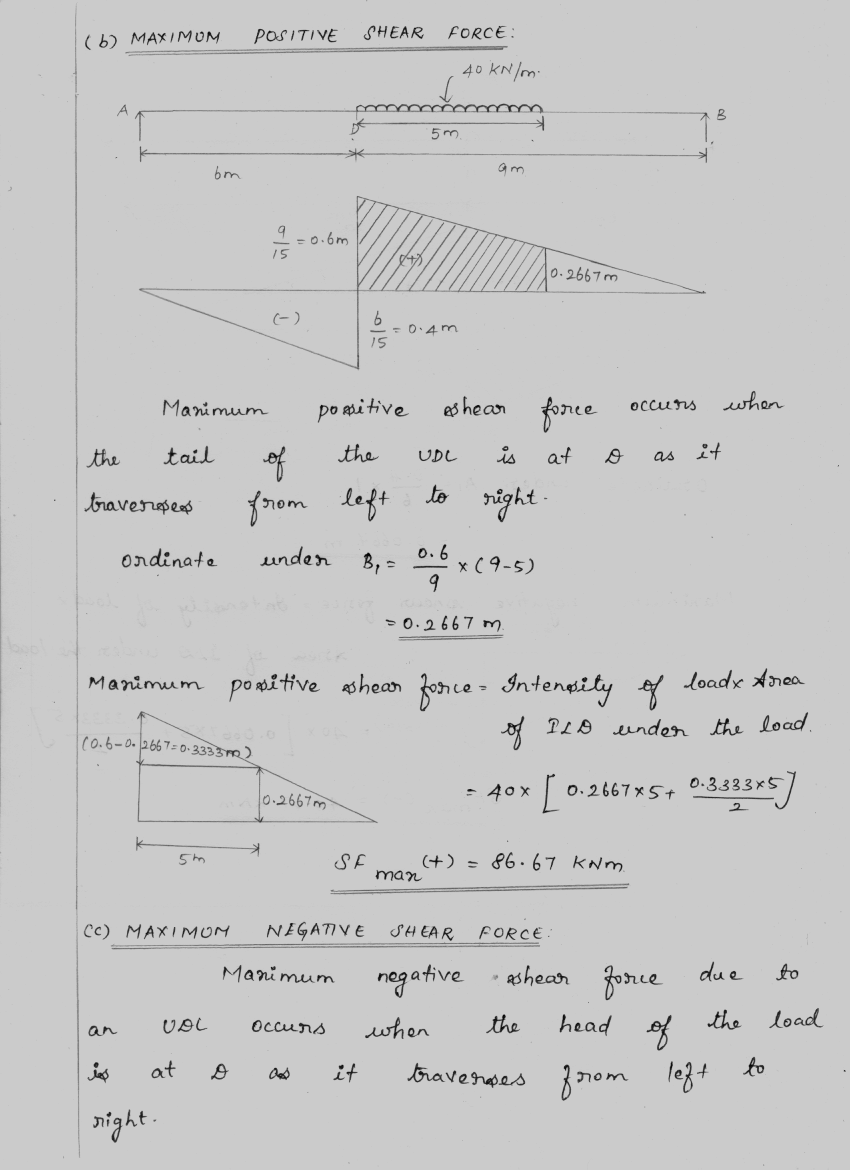 (b) MAXIMUM POSITIVE SHEAR FORCE:
40 KN/m.
A
B
D
5m
6m
9m
9/15 = 0.6m
(+)
0.2667m
(-)
6/15 = 0.4m
Maximum positive shear force occurs when
the tail of the UDL is at D as it
traverses from left to right.
ordinate under B1 = 0.6/9 x (9-5)
= 0.2667 m
Maximum positive shear force = Intensity of load x Area
of ILD under the load.
(0.6-0.2667=0.3333m)
0.2667m
= 40x [ 0.2667x5+ 0.3333x5/2 ]
5m
SF max (+) = 86.67 KNm
(c) MAXIMUM NEGATIVE SHEAR FORCE:
Maximum negative shear force due to
an UDL occurs when the head of the load
is at D as it traverses from left to
right.